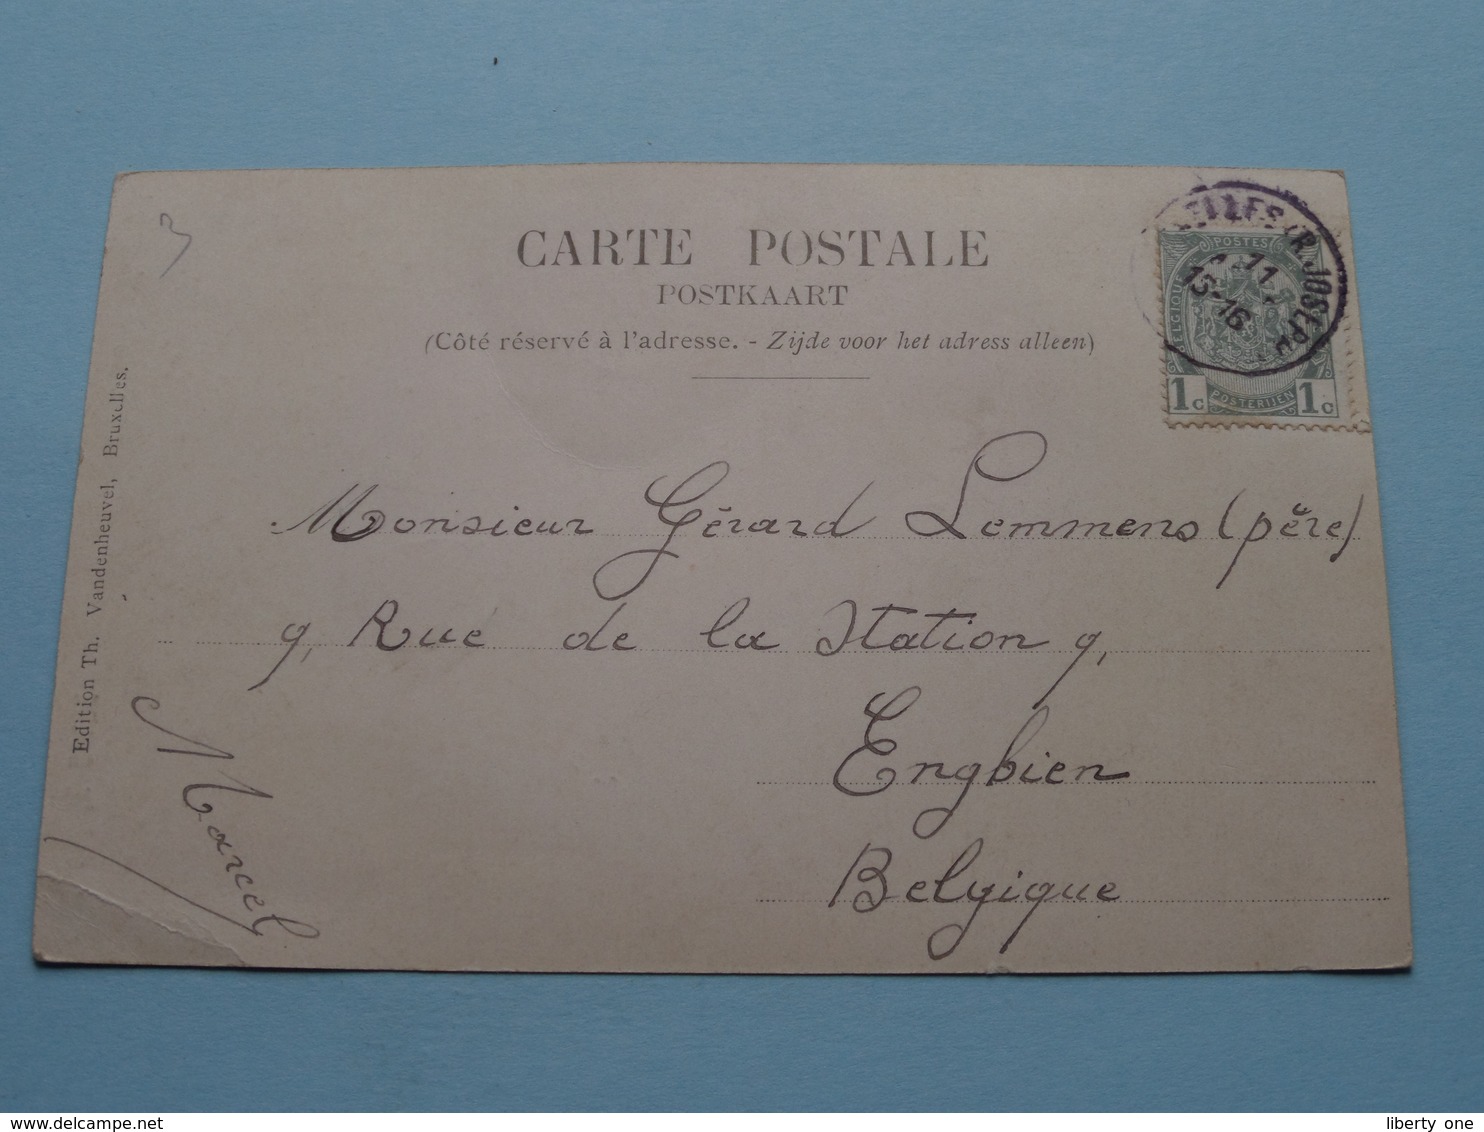 CARTE POSTALE
POSTKAART
(Côté réservé à l'adresse. - Zijde voor het adress alleen)
ELLES (R. JOSEPH
11
15-16
POSTES
BELGIQUE
1c 1c
POSTERIJEN
Monsieur Gérard Lemmens (père)
9, Rue de la Station 9,
Enghien
Belgique
Marcel
Edition Th. Vandenheuvel, Bruxelles.
3
liberty one